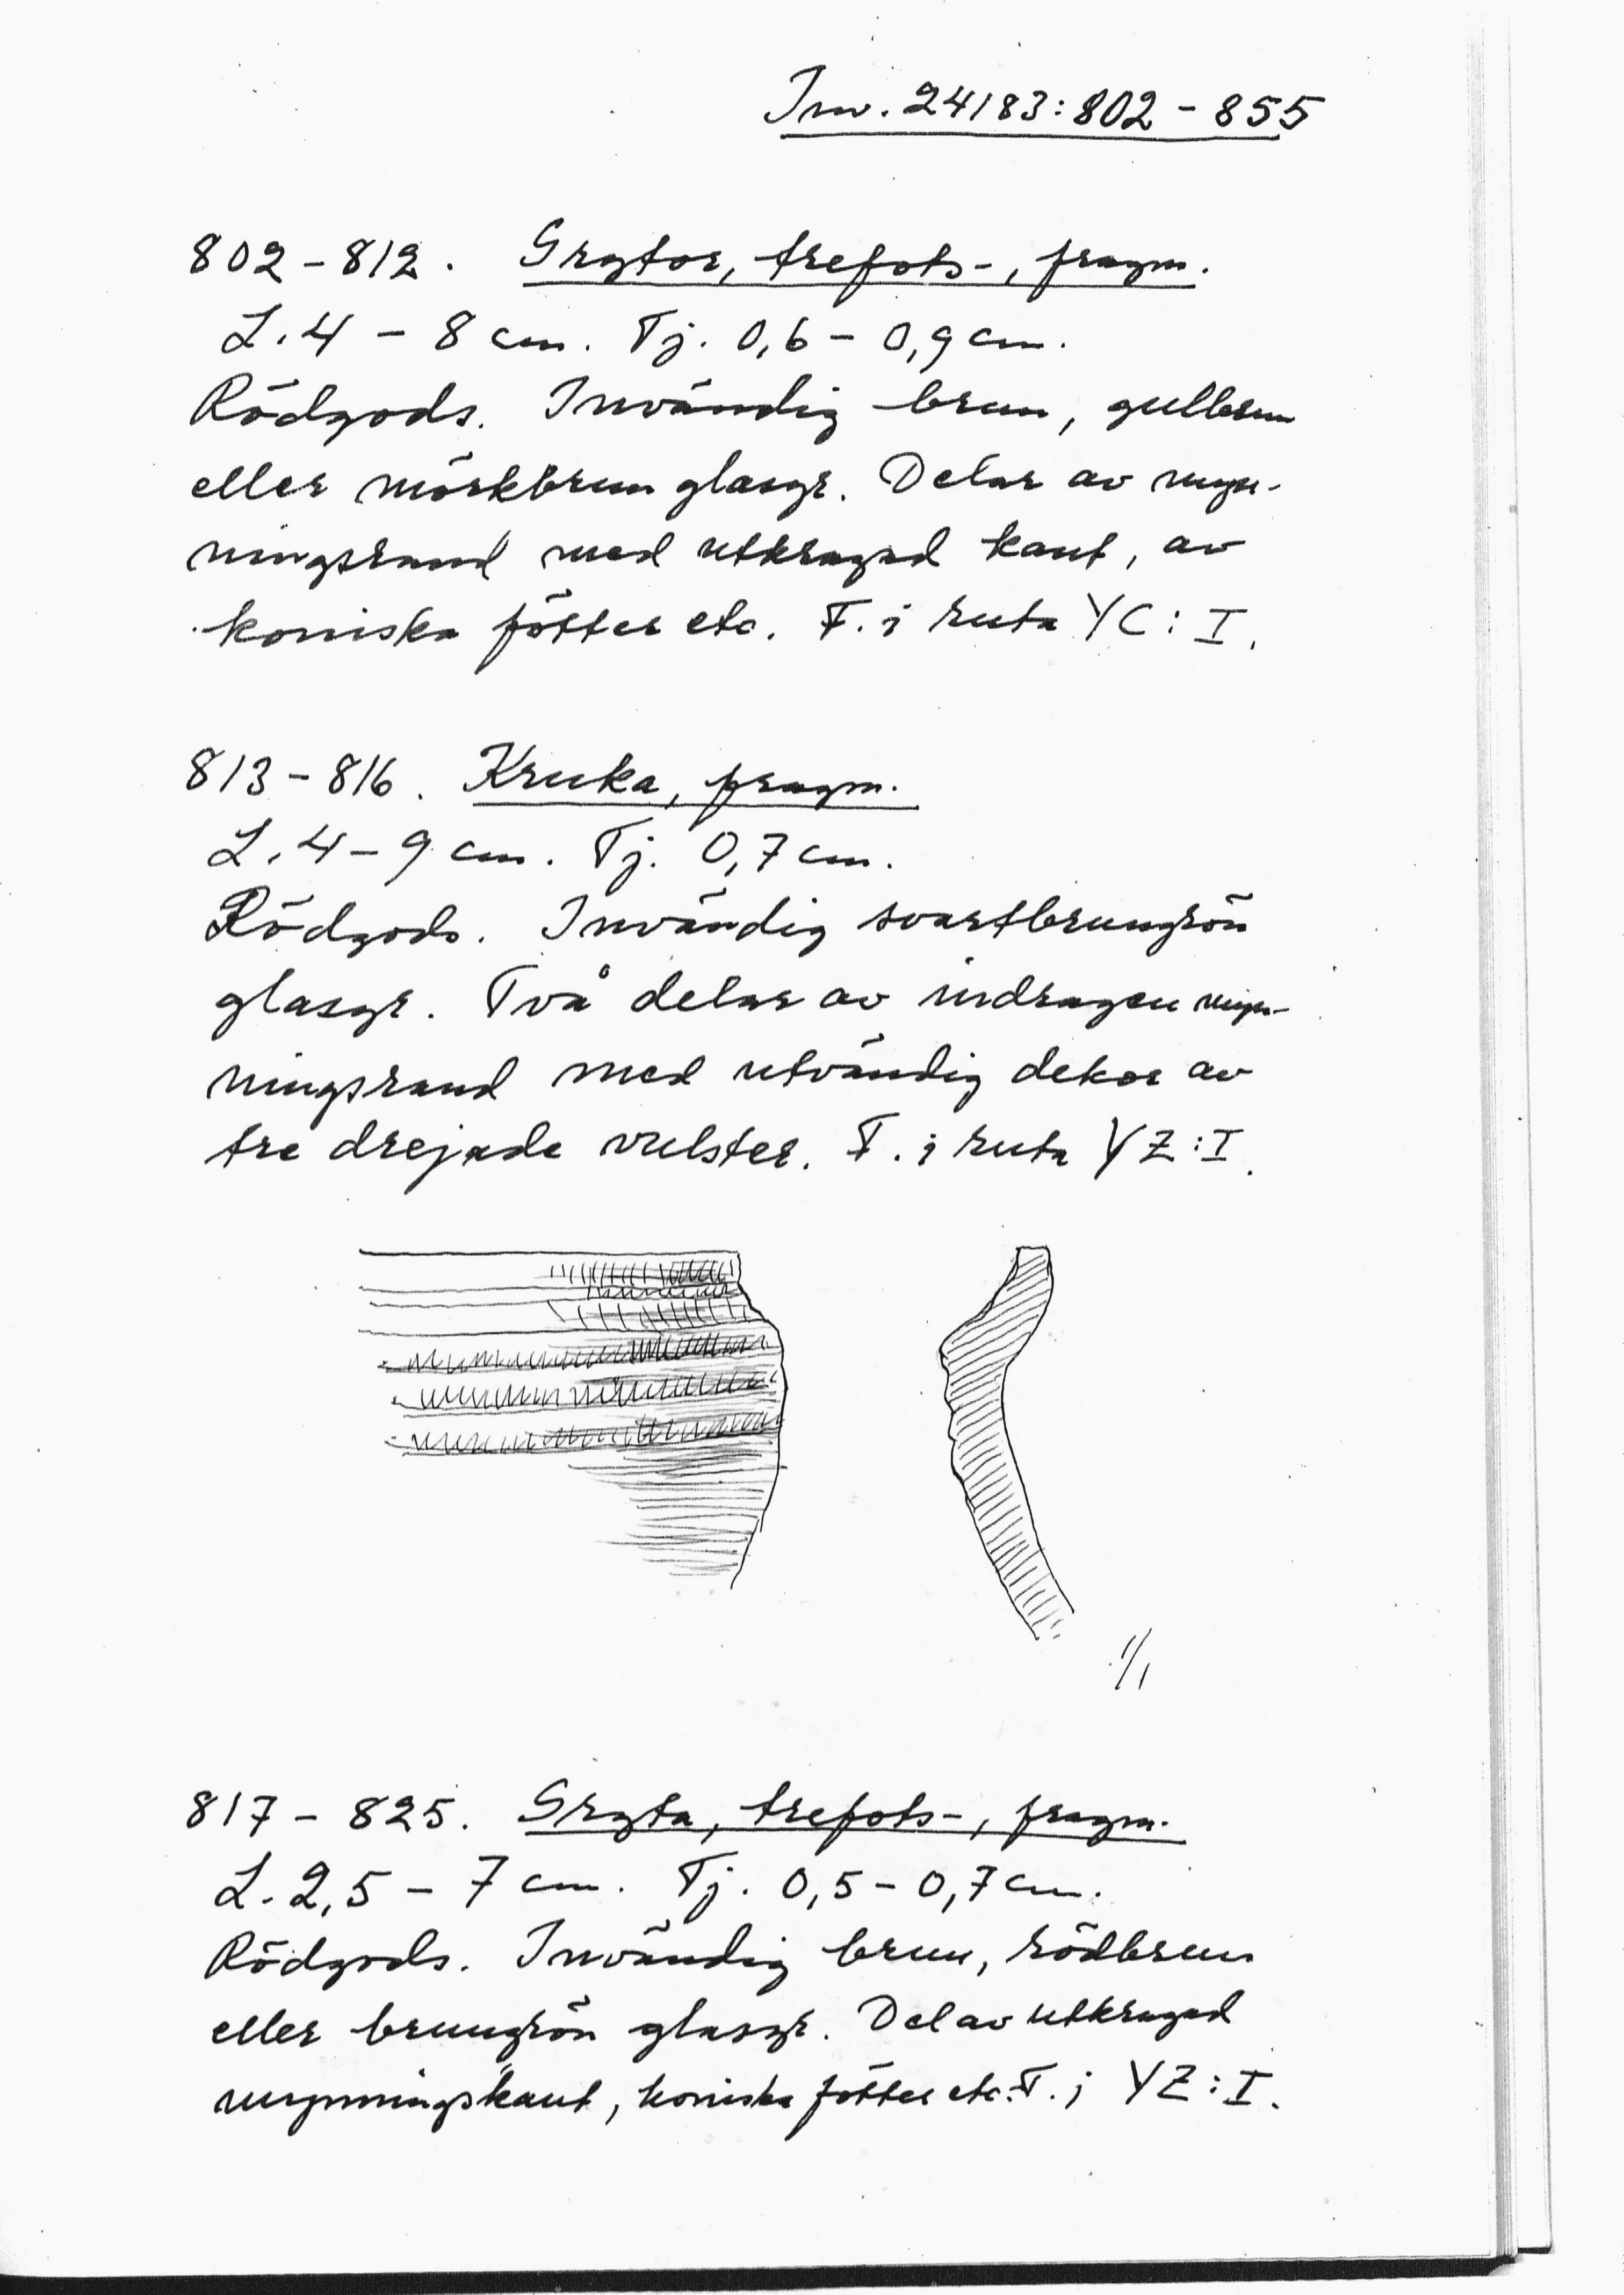 Inv. 24183:802 - 855
802 - 812. Grytor, trefots-, fragm.
L. 4 - 8 cm. Tj. 0,6 - 0,9 cm.
Rödgods. Invändig brun, gulbrun
eller mörkbrun glasyr. Delar av myn-
ningsrand med utkragad kant, av
koniska fötter etc. F. i ruta YC: I.
813 - 816. Kruka, fragm.
L. 4 - 9 cm. Tj. 0,7 cm.
Rödgods. Invändig svartbrungrön
glasyr. Två delar av indragen myn-
ningsrand med utvändig dekor av
tre drejade vulster. F. i ruta YZ: I.
1/1
817 - 825. Gryta, trefots-, fragm.
L. 2,5 - 7 cm. Tj. 0,5 - 0,7 cm.
Rödgods. Invändig brun, rödbrun
eller brungrön glasyr. Del av utkragad
mynningskant, koniska fötter etc. F. i YZ: I.